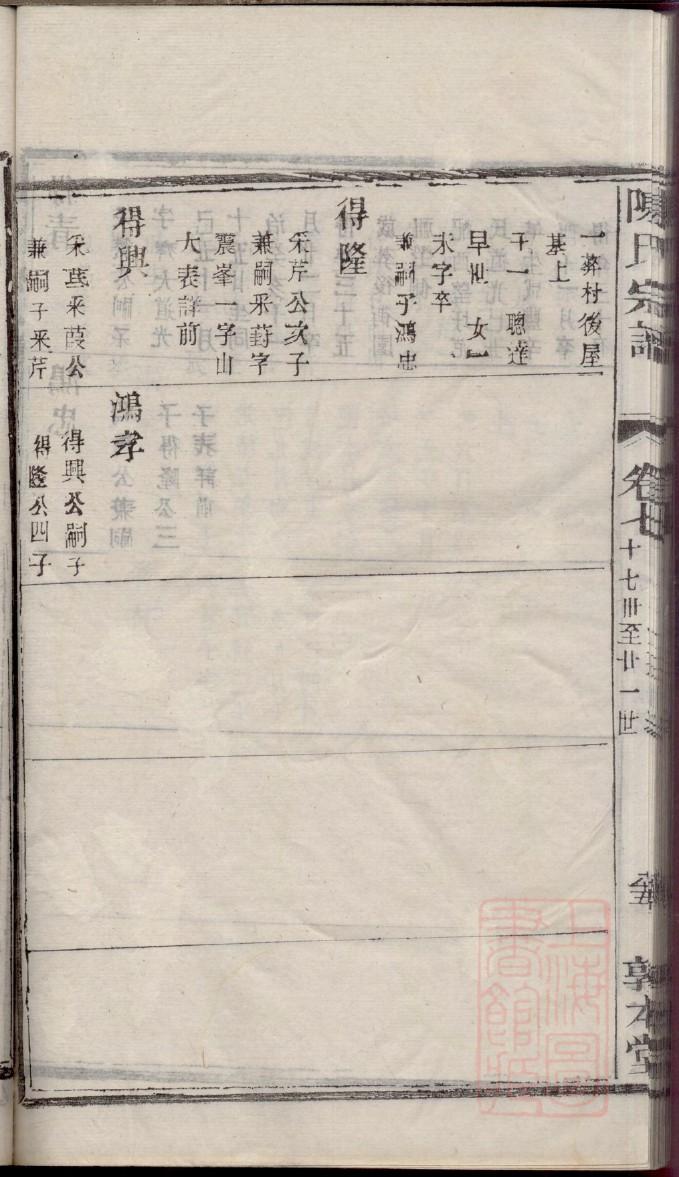 陳氏宗譜
卷七
十七卅至廿一世
敦本堂
一葬村後屋
基上
子一 聰達
早世 女一
未字卒
兼嗣子鴻忠
得隆
釆芹公次子
兼嗣釆葑字
震峯一字山
大表詳前
得興
釆葑釆葭公
兼嗣子釆芹
鴻孝
得興公嗣子
得隆公四子
上海圖書館藏